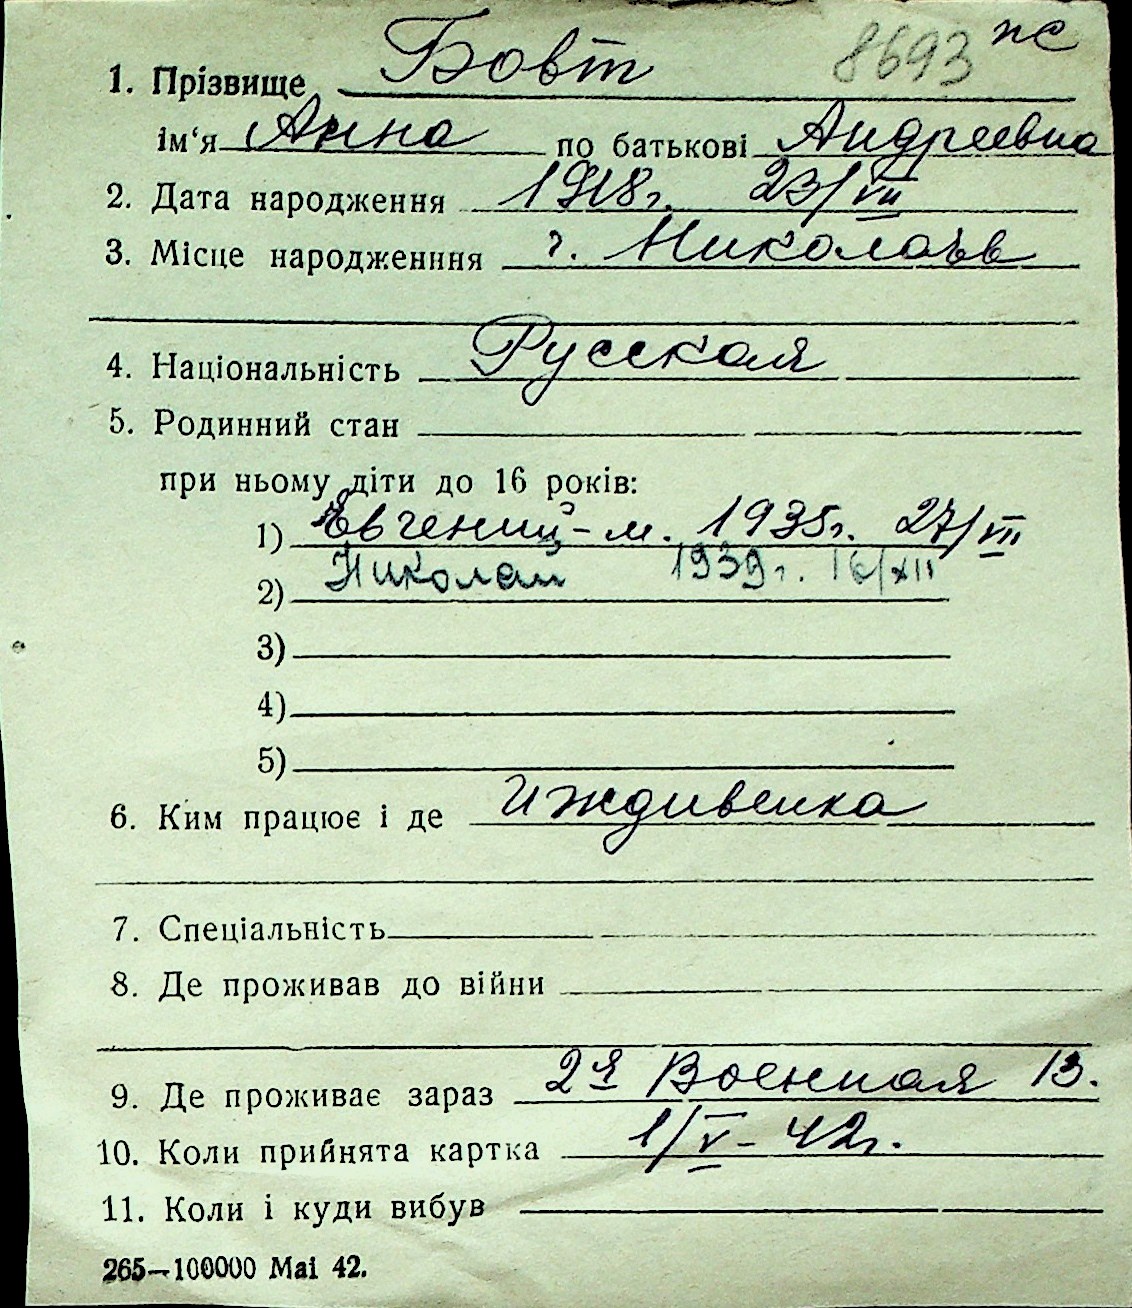 8693 жс
1. Прізвище Бовт
ім‘я Анна по батькові Андреевна
2. Дата народження 1918г. 23/VII
3. Місце народженння г. Николаев
4. Національність Русская
5. Родинний стан
при ньому діти до 16 років:
1) Евгений - м. 1935г. 27/VII
2) Николай 1939г. 16/XII
3)
4)
5)
6. Ким працює і де Иждивенка
7. Спеціальність
8. Де проживав до війни
9. Де проживає зараз 2я Военная 13.
10. Коли прийнята картка 1/V - 42г.
11. Коли і куди вибув
265—100000 Mai 42.